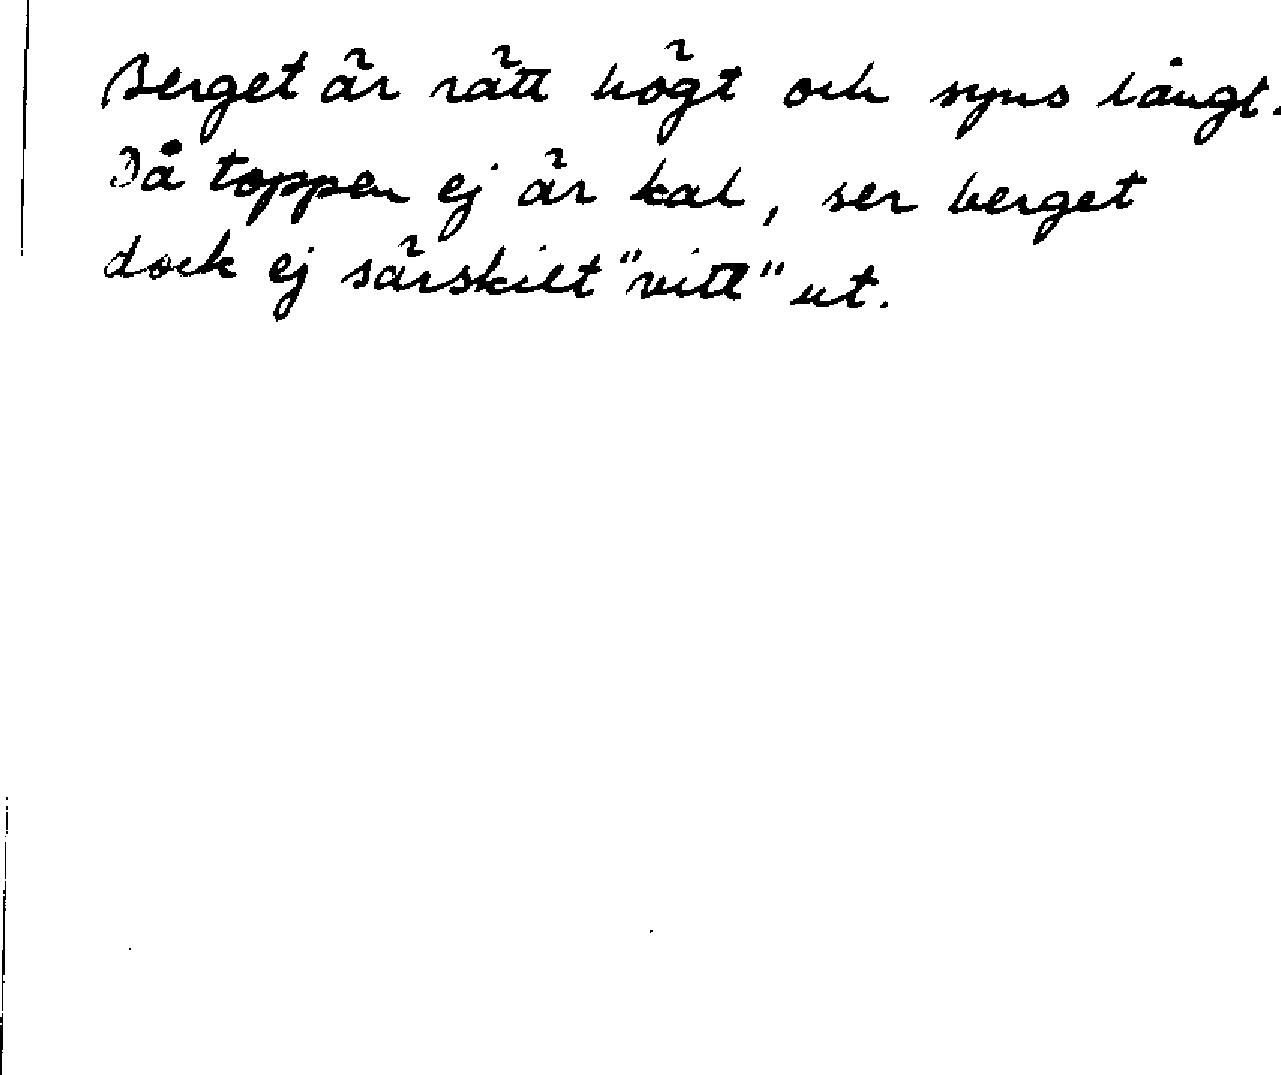 Berget är rätt högt och syns långt.
Då toppen ej är kal, ser berget
dock ej särskilt "vitt" ut.